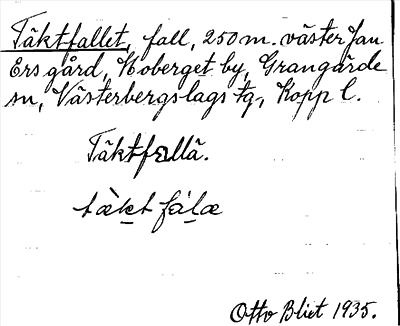 Täktfallet, fall, 250 m. väster Jan
Ers gård, Hoberget by, Grangärde
sn, Västerbergslags tg, Kopp l.
Täktfallä.
tæ̀kt fálæ
Otto Blixt 1935.